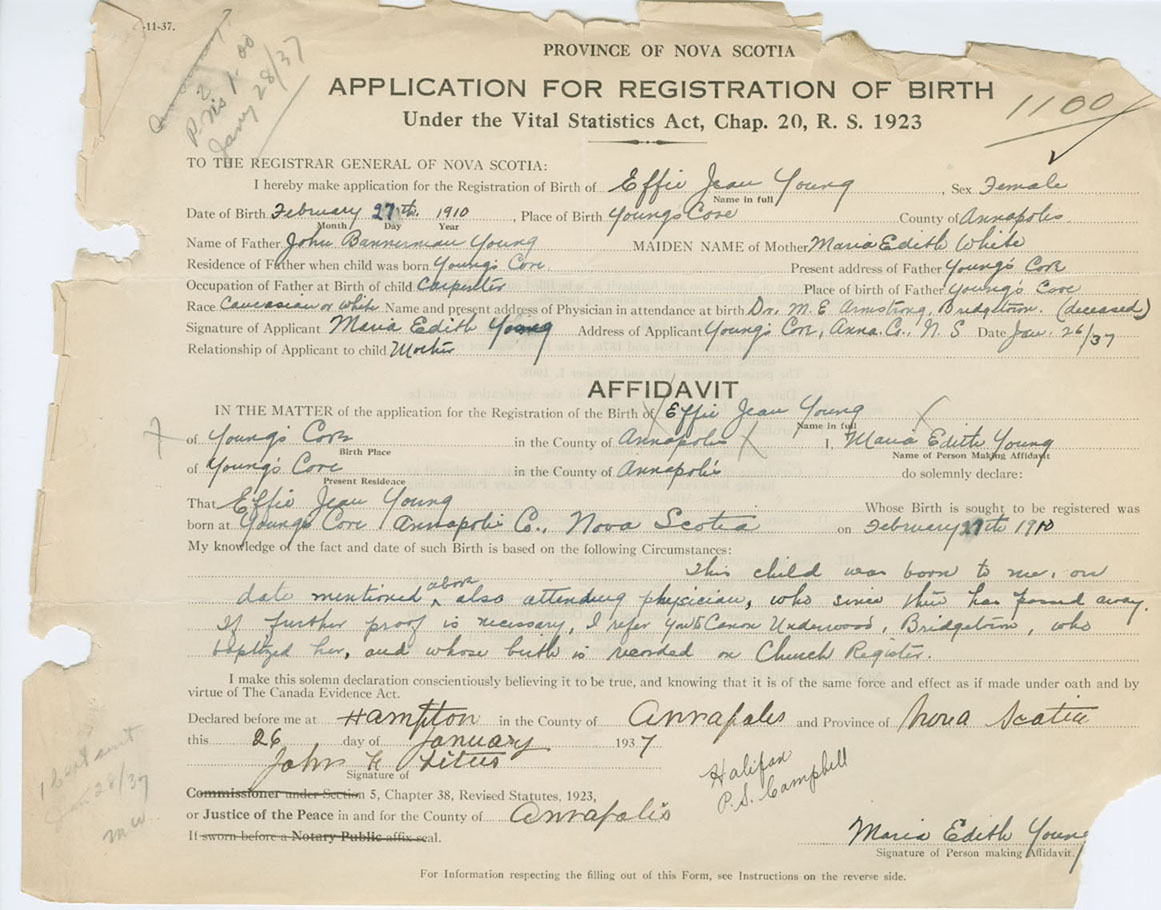 -11-37.
P. N's 1.00
Jany 28/37
PROVINCE OF NOVA SCOTIA
APPLICATION FOR REGISTRATION OF BIRTH
1100
Under the Vital Statistics Act, Chap. 20, R. S. 1923
TO THE REGISTRAR GENERAL OF NOVA SCOTIA:
I hereby make application for the Registration of Birth of Effie Jean Young , Sex Female
Name in full
Date of Birth February 27th. 1910 , Place of Birth Young's Cove County of Annapolis
Month Day Year
Name of Father John Bannerman Young MAIDEN NAME of Mother Maria Edith White
Residence of Father when child was born Young's Cove. Present address of Father Young's Cove
Occupation of Father at Birth of child Carpenter Place of birth of Father Young's Cove
Race Caucasian or white Name and present address of Physician in attendance at birth Dr. M. E. Armstrong, Bridgetown. (deceased)
Signature of Applicant Maria Edith Young Address of Applicant Young's Cove, Anna. Co., N. S Date Jan. 26/37
Relationship of Applicant to child Mother
AFFIDAVIT
IN THE MATTER of the application for the Registration of the Birth of Effie Jean Young
Name in full
of Young's Cove in the County of Annapolis I, Maria Edith Young
Birth Place Name of Person Making Affidavit
of Young's Cove in the County of Annapolis do solemnly declare:
Present Residence
That Effie Jean Young Whose Birth is sought to be registered was
born at Young's Cove Annapolis Co., Nova Scotia on February 27th 1910
My knowledge of the fact and date of such Birth is based on the following Circumstances:
This child was born to me, on
date mentioned above also attending physician, who since then has passed away.
If further proof is necessary, I refer you to Canon Underwood, Bridgetown, who
baptized her, and whose birth is recorded on Church Register.
I make this solemn declaration conscientiously believing it to be true, and knowing that it is of the same force and effect as if made under oath and by
virtue of The Canada Evidence Act.
Declared before me at Hampton in the County of Annapolis and Province of Nova Scotia
this 26 day of January 1937
John H Titus
Signature of
Halifax
P.S. Campbell
Commissioner under Section 5, Chapter 38, Revised Statutes, 1923,
or Justice of the Peace in and for the County of Annapolis
If sworn before a Notary Public affix seal.
1 Cert sent
Jan 28/37
mw
Maria Edith Young
Signature of Person making Affidavit.
For Information respecting the filling out of this Form, see Instructions on the reverse side.